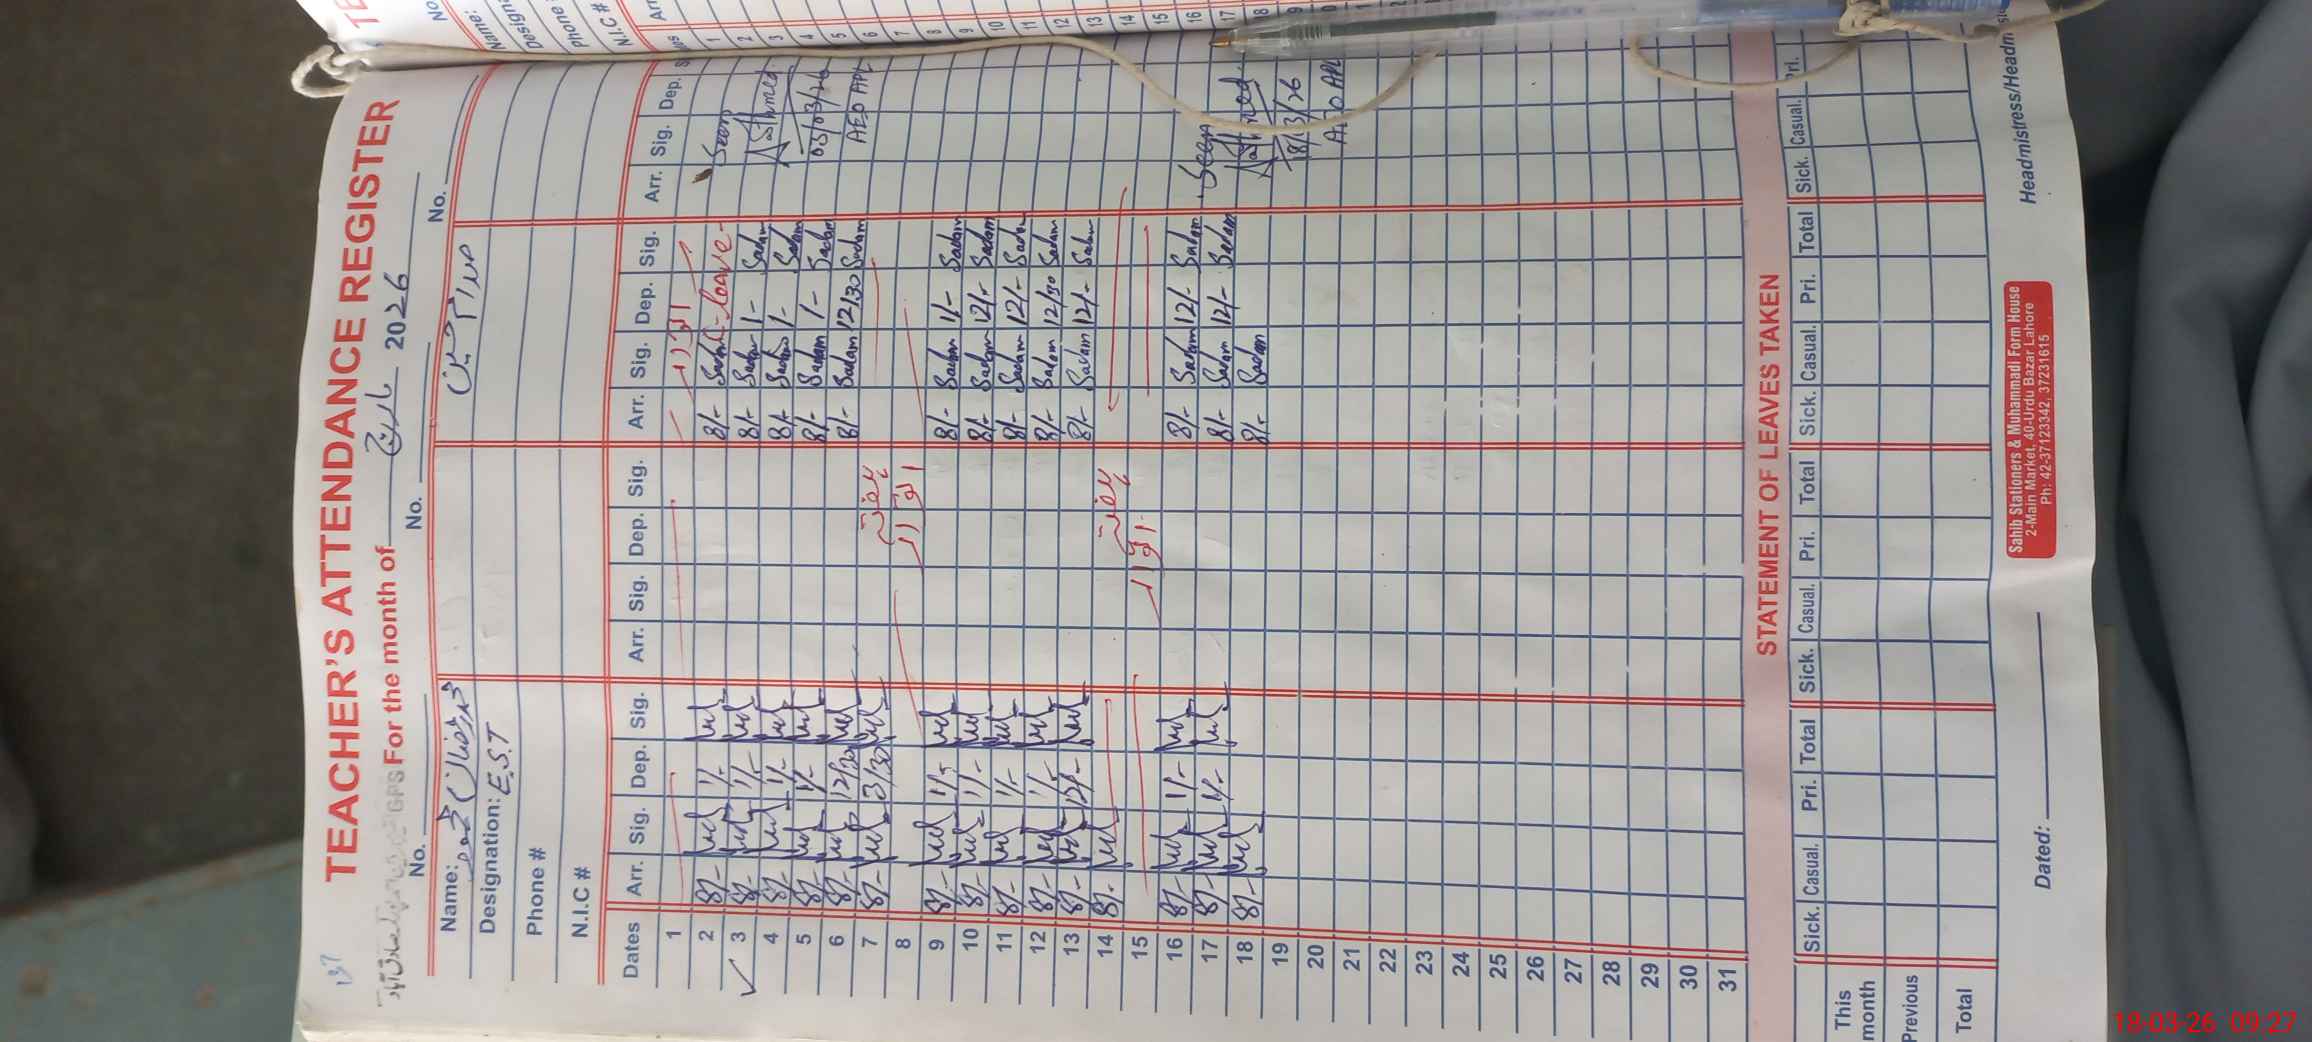 TEACHER'S ATTENDANCE REGISTER
137
GPS For the month of مارچ 2026
No. No. No.
Name: محمد رمضان صدام حسین
Designation: E.S.T
Phone #
N.I.C #
Dates Arr. Sig. Dep. Sig. Arr. Sig. Dep. Sig. Arr. Sig. Dep. Sig. Arr. Sig. Dep.
1 اتوار
2 8/- 1/- 8/- C-leave- Seen
3 8/- 1/- 8/- Sadam 1/- Sadam
4 8/- 1/- 8/- Sadam 1/- Sadam
5 8/- 1/- 8/- Sadam 1/- Sadam 05/03/26
6 8/- 12/30 8/- Sadam 12/30 Sadam AEO APL
7 8/- 3/30 ہفتہ
8 اتوار
9 8/- 1/- 8/- Sadam 1/- Sadam
10 8/- 1/- 8/- Sadam 12/- Sadam
11 8/- 1/- 8/- Sadam 12/- Sadam
12 8/- 1/- 8/- Sadam 12/30 Sadam
13 8/- 12/- 8/- Sadam 12/- Sadam
14 8/- ہفتہ
15 اتوار
16 8/- 1/- 8/- Sadam 12/- Sadam Seen
17 8/- 1/- 8/- Sadam 12/- Sadam
18 8/- 8/- Sadam 18/3/26
19 AEO APL
20
21
22
23
24
25
26
27
28
29
30
31
STATEMENT OF LEAVES TAKEN
Sick. Casual. Pri. Total Sick. Casual. Pri. Total Sick. Casual. Pri. Total Sick. Casual. Pri.
This month
Previous
Total
Dated:
Sahib Stationers & Muhammadi Form House
2-Main Market, 40-Urdu Bazar Lahore
Ph: 42-37123342, 37231615
Headmistress/Headm
No.
Name:
Phone
N.I.C #
1
2
3
4
5
6
7
8
9
10
11
12
13
14
15
16
17
18-03-26 09:27